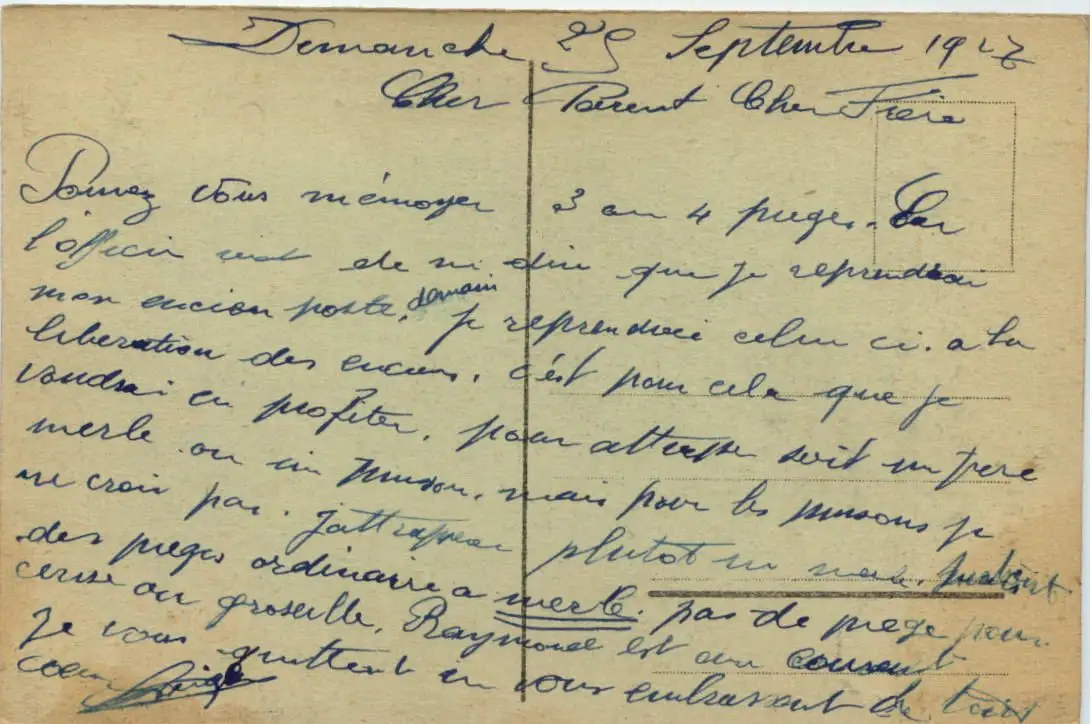 Demanche 25 Septembre 1927
Cher Parent Cher Frère
Pouvez vous m'émoyer 3 au 4 pieges. Car
l'officier vient de me dire que je reprendrai
mon encien poste, demain je reprendrai celui ci. a la
liberation des enciens, c'est pour cela que je
voudrai en profiter, pour attrape soit un père
merle ou un pinson, mais pour les pinsons je
ne crois pas. j'attraperai plutot un merle,
des pieges ordinaire a merle. pas de piege pour
cerise ou groseille. Raymond est au courant
Je vous quittent en vous embrassent de tout
coeur